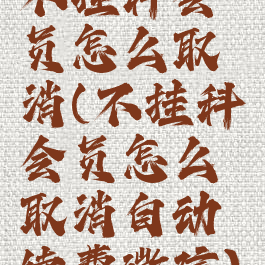 不挂科会
员怎么取
消(不挂科
会员怎么
取消自动
续费微信)